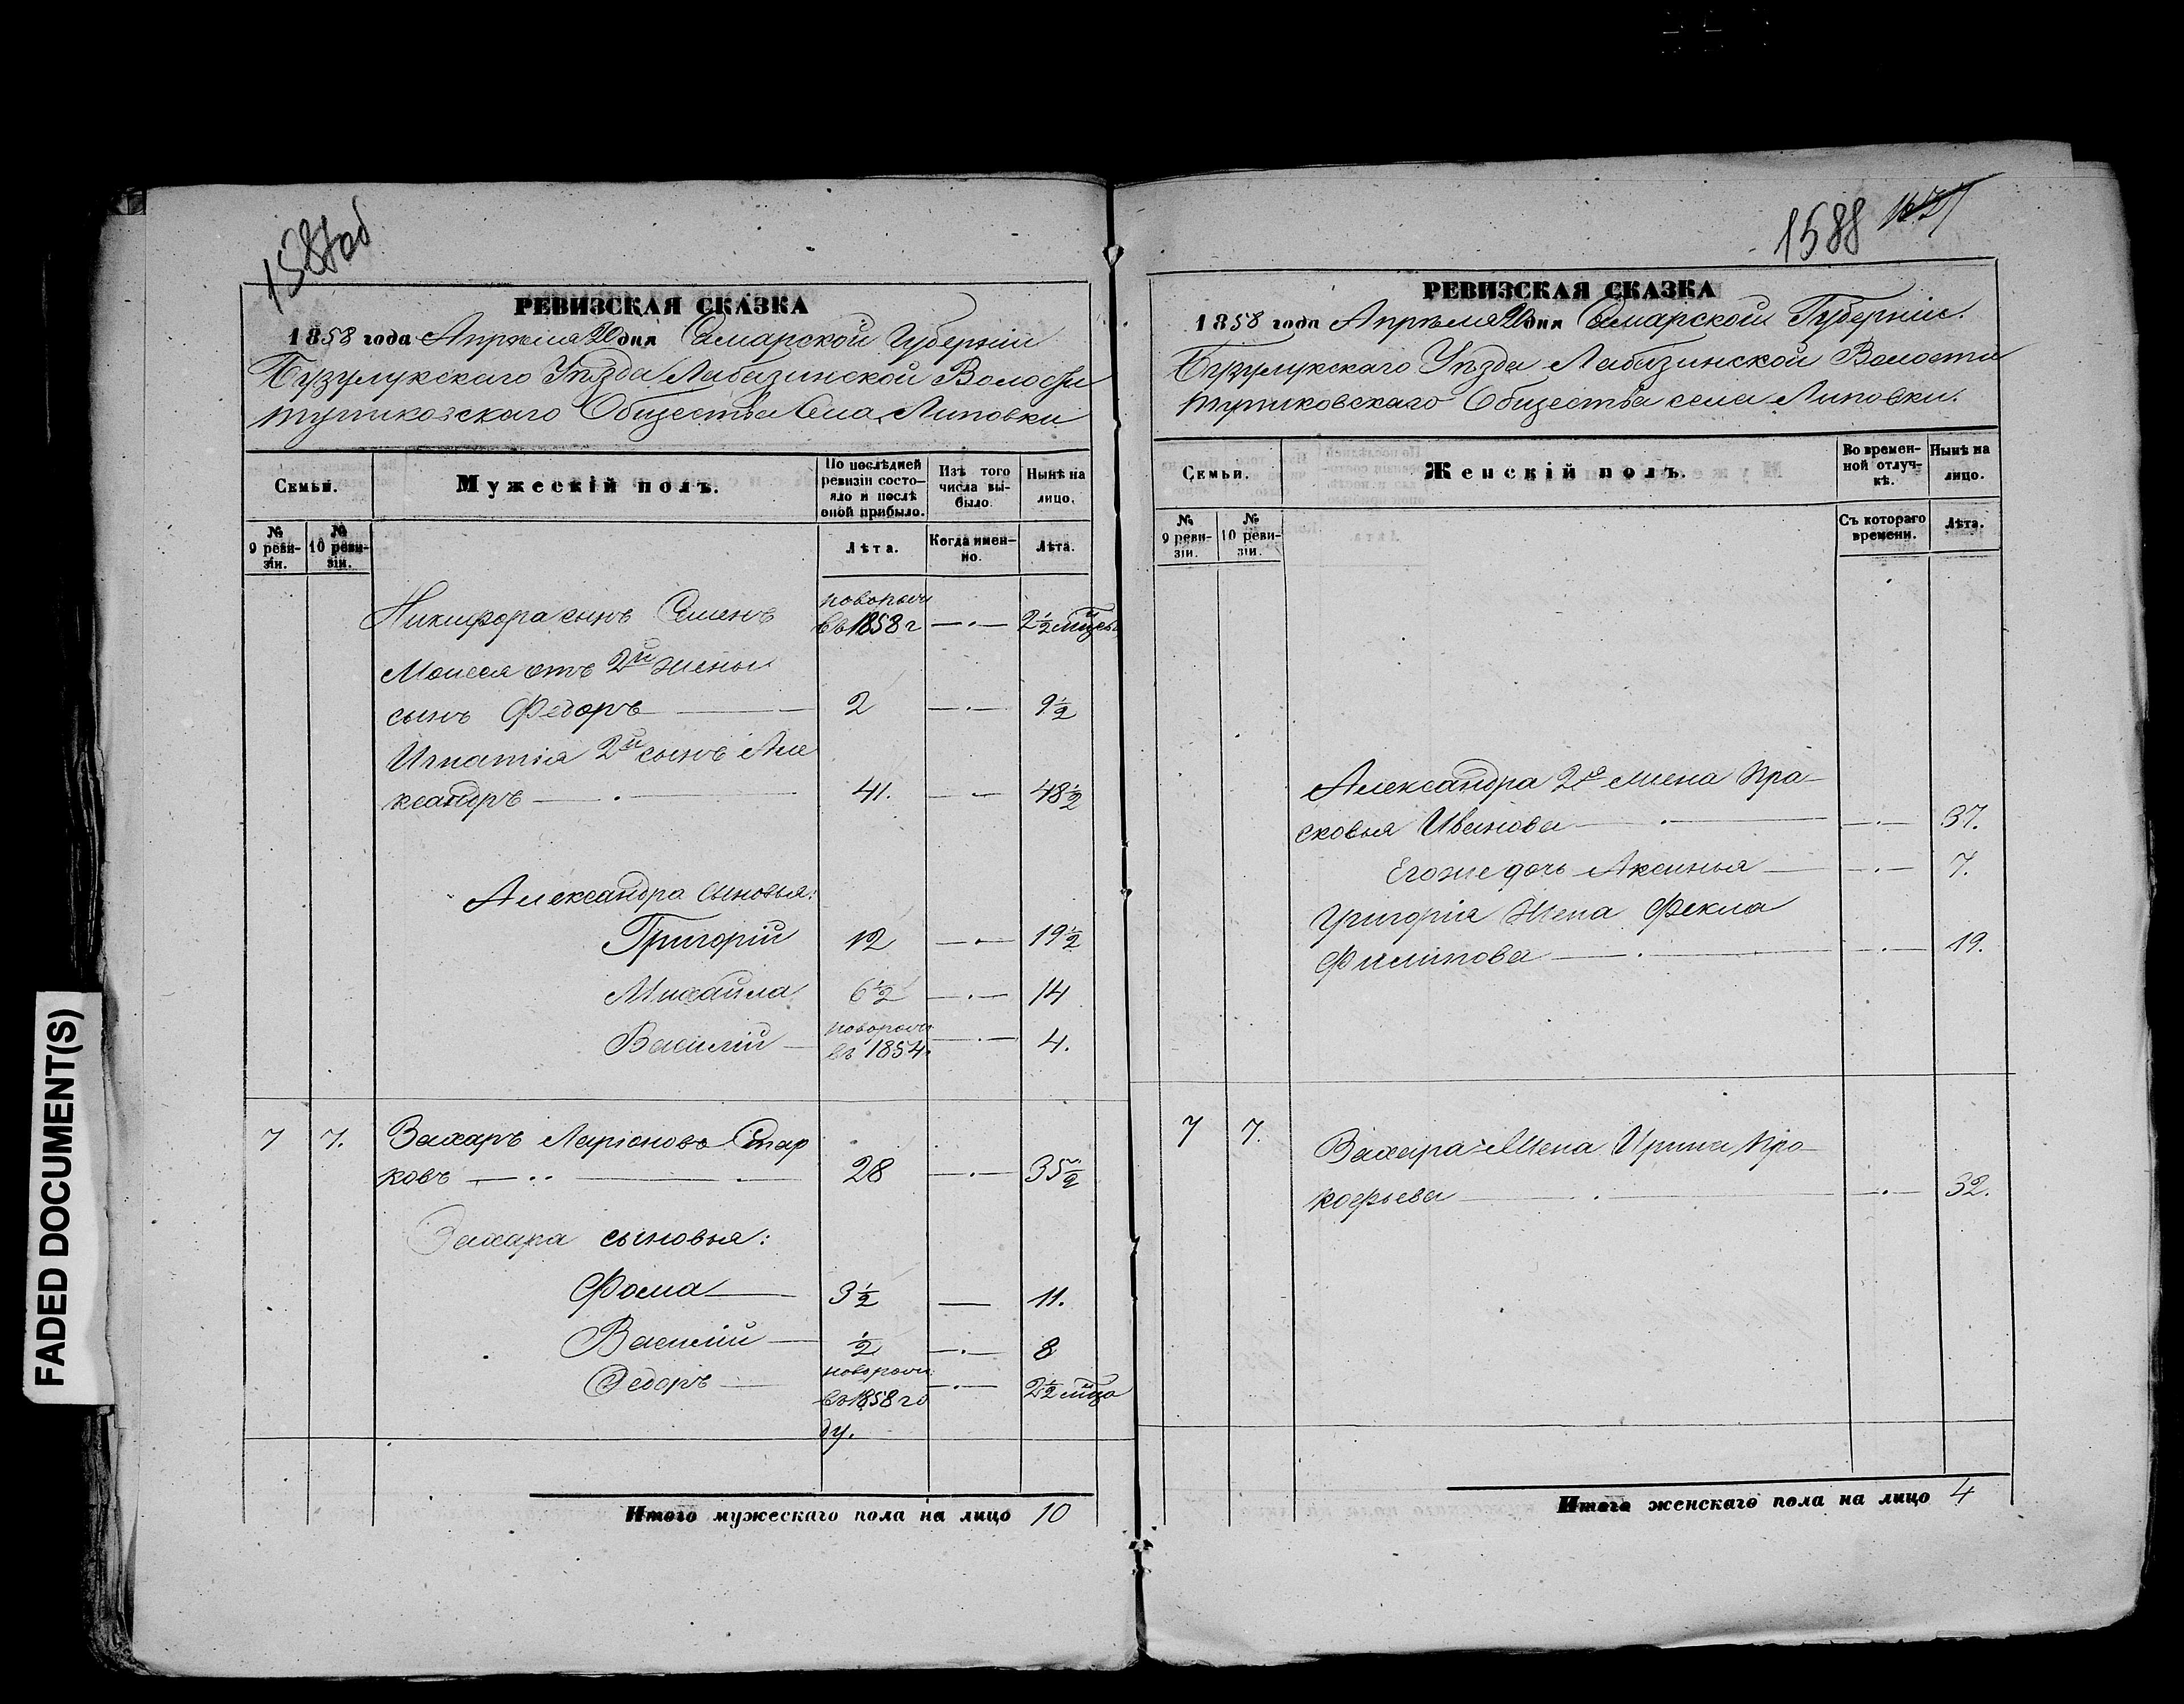 1587об
РЕВИЗСКАЯ СКАЗКА
1858 года Апрѣля 20 дня Самарской Губерніи
Бузулукскаго Уѣзда Лабазинской Волости
Тупиковскаго Общества Села Липовки
Семьи.
Мужескій полъ.
По послѣдней ревизіи состояло и послѣ оной прибыло.
Изъ того числа выбыло.
Нынѣ на лицо.
№ 9 ревизіи.
№ 10 ревизіи.
Лѣта.
Когда именно.
Лѣта.
Никифора сынъ Семенъ новорож въ 1858 г 2½ мѣсе
Моисея отъ 2й жены
сынъ Федоръ 2 9½
Игнатія 2й сынъ Але
ксандръ 41. 48½
Александра сыновья:
Григорій 12 19½
Михайла 6½ 14
Василій новорож въ 1854 г 4.
7 7. Захаръ Ларіоновъ Стар
ковъ 28 35½
Захара сыновья:
Фома 3½ 11.
Василій ½ 8
Федоръ новорож въ 1858 году. 2½ мѣца
Итого мужескаго пола на лицо 10
1588
РЕВИЗСКАЯ СКАЗКА
1858 года Апрѣля 20 дня Самарской Губерніи.
Бузулукскаго Уѣзда Лабазинской Волости
Тупиковскаго Общества села Липовки.
Семьи.
Женскій полъ.
Во временной отлучкѣ.
Нынѣ на лицо.
№ 9 ревизіи.
№ 10 ревизіи.
Съ котораго времени.
Лѣта.
Александра 2я жена Пра-
сковья Иванова 37.
Его же дочь Аксинья 7.
Григорія Жена Фекла
Филипова 19.
7 7. Захара Жена Ирина Про-
кофьева 32.
Итого женскаго пола на лицо 4
FADED DOCUMENT(S)